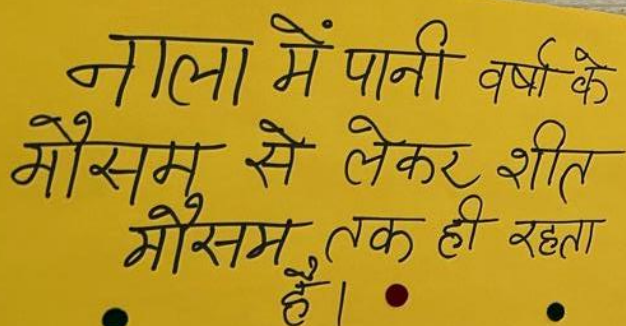 नाला में पानी वर्षा के
मौसम से लेकर शीत
मौसम तक ही रहता
है।